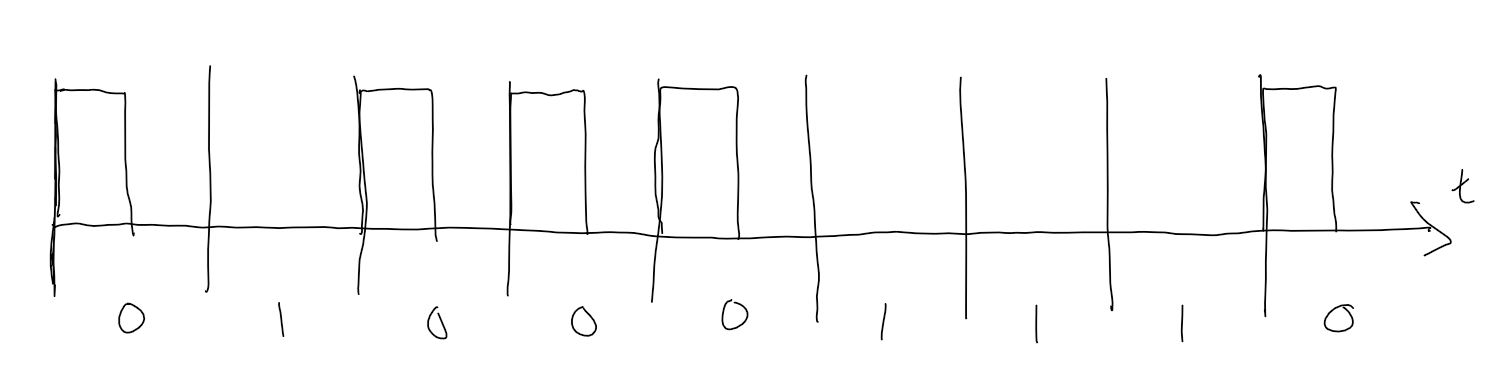 t
0 1 0 0 0 1 1 1 0